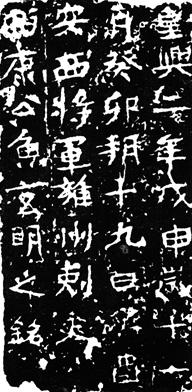 皇興二年戊申歲十一
月癸卯朔十九日辛酉
安西將軍雍州刺史
康公魚玄明之銘